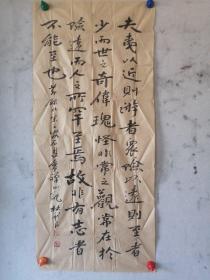 夫夷以近则游者众险以远则至者
少而世之奇伟瑰怪非常之观常在於
险远而人之所罕至焉故非有志者
不能至也